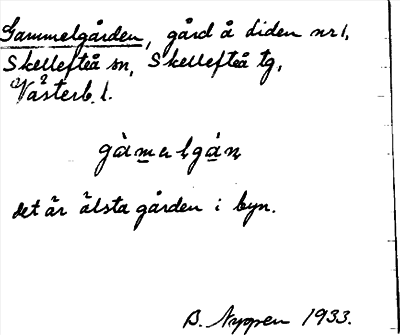 Gammelgården, gård å diden nr 1,
Skellefteå sn, Skellefteå tg,
Västerb. l.
gàmelgán
det är älsta gården i byn.
B. Nygren 1933.